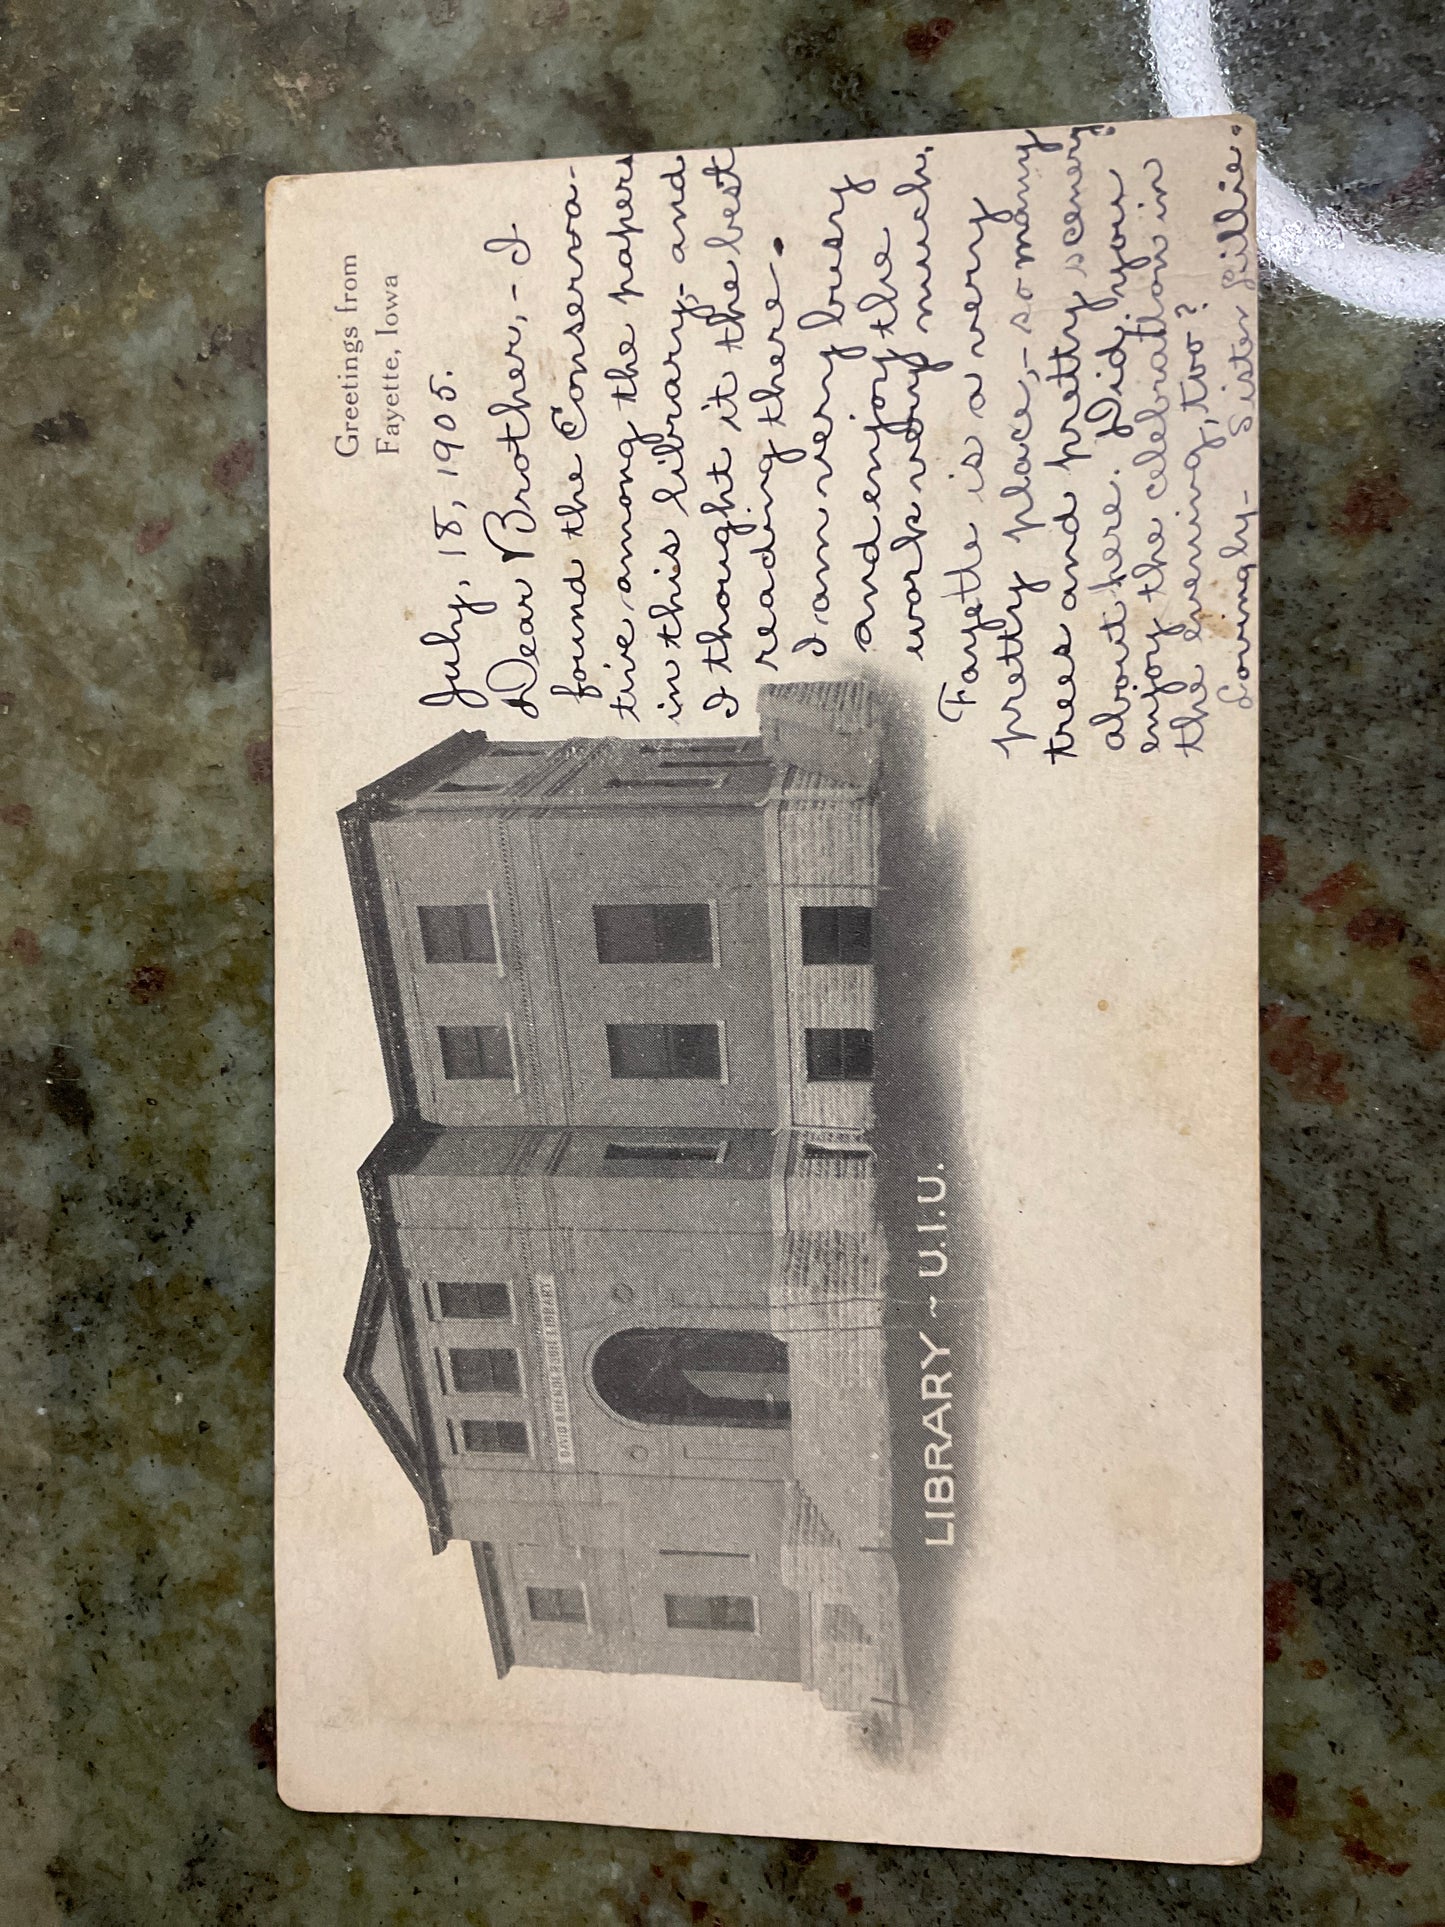 Greetings from
Fayette, Iowa
July, 18, 1905.
Dear Brother,- I
found the Conserva-
tive among the papers
in this library,- and
I thought it the best
reading there.
I am very busy
and enjoy the
work very much.
Fayette is a very
pretty place,- so many
trees and pretty scenery
about here. Did you
enjoy the celebration in
the evening, too?
Lovingly- Sister Lillie.
DAVID B. HENDERSON LIBRARY
LIBRARY ~ U.I.U.